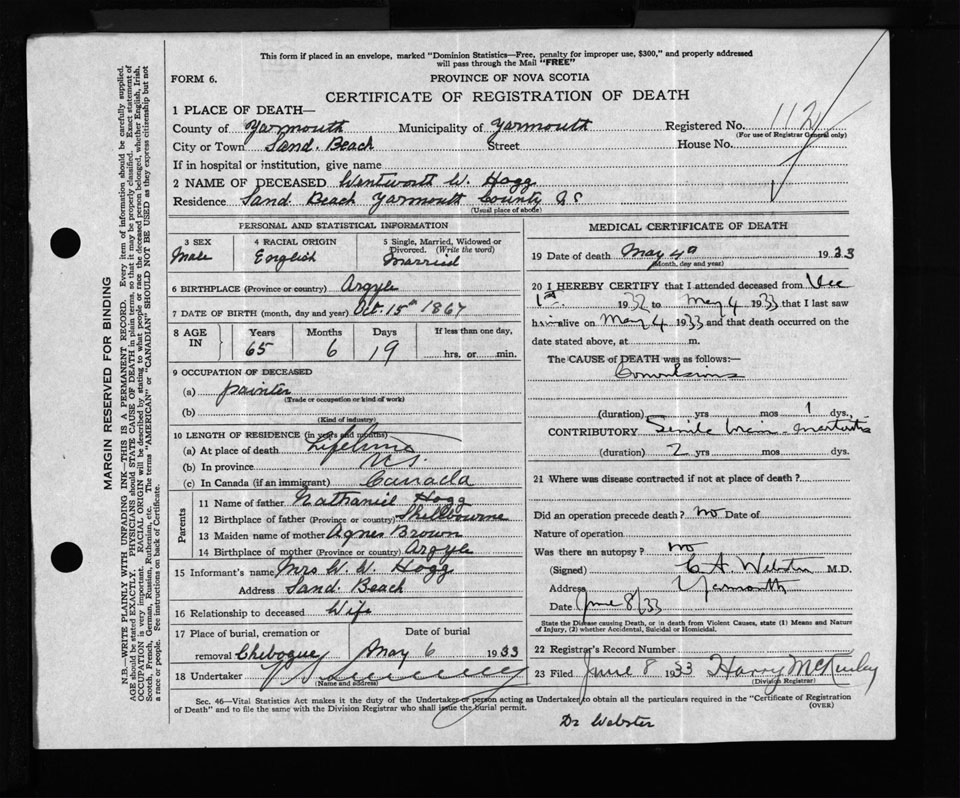 This form if placed in an envelope, marked "Dominion Statistics—Free, penalty for improper use, $300," and properly addressed
will pass through the Mail "FREE"
FORM 6.
PROVINCE OF NOVA SCOTIA
CERTIFICATE OF REGISTRATION OF DEATH
1 PLACE OF DEATH—
County of Yarmouth Municipality of Yarmouth Registered No. 112
(For use of Registrar General only)
City or Town Sand Beach Street House No.
If in hospital or institution, give name
2 NAME OF DECEASED Wentworth W. Hogg
Residence Sand Beach Yarmouth County
(Usual place of abode)
PERSONAL AND STATISTICAL INFORMATION
3 SEX
Male
4 RACIAL ORIGIN
English
5 Single, Married, Widowed or
Divorced. (Write the word)
Married
6 BIRTHPLACE (Province or country) Argyle
7 DATE OF BIRTH (month, day and year) Oct. 15th 1867
8 AGE IN
Years Months Days If less than one day,
65 6 19 hrs. or min.
9 OCCUPATION OF DECEASED
(a) painter
(Trade or occupation or kind of work)
(b)
(Kind of industry)
10 LENGTH OF RESIDENCE (in years and months)
(a) At place of death Lifetime
(b) In province N.S.
(c) In Canada (if an immigrant) Canada
Parents
11 Name of father Nathaniel Hogg
12 Birthplace of father (Province or country) Shelbourne
13 Maiden name of mother Agnes Brown
14 Birthplace of mother (Province or country) Argyle
15 Informant's name Mrs W. W. Hogg
Address Sand Beach
16 Relationship to deceased Wife
17 Place of burial, cremation or Date of burial
removal Chebogue May 6 1933
18 Undertaker
(Name and address)
MEDICAL CERTIFICATE OF DEATH
19 Date of death May 4 1933
(Month, day and year)
20 I HEREBY CERTIFY that I attended deceased from Dec
1st 1932 to May 4 1933 that I last saw
him alive on May 4 1933 and that death occurred on the
date stated above, at m.
The CAUSE of DEATH was as follows:—
Convulsions
(duration) yrs mos 1 dys.,
CONTRIBUTORY Senile
(duration) 2 yrs mos dys.
21 Where was disease contracted if not at place of death?
Did an operation precede death? no Date of
Nature of operation
Was there an autopsy? no
(Signed) C A Webster M.D.
Address Yarmouth
Date June 8/33
State the Disease causing Death, or in death from Violent Causes, state (1) Means and Nature
of Injury, (2) whether Accidental, Suicidal or Homicidal.
22 Registrar's Record Number
23 Filed June 8 1933 Harry McKinley
(Division Registrar)
Sec. 46—Vital Statistics Act makes it the duty of the Undertaker or person acting as Undertaker to obtain all the particulars required in the "Certificate of Registration
of Death" and to file the same with the Division Registrar who shall issue the burial permit.
(OVER)
Dr Webster
MARGIN RESERVED FOR BINDING
N.B.—WRITE PLAINLY WITH UNFADING INK—THIS IS A PERMANENT RECORD. Every item of information should be carefully supplied.
AGE should be stated EXACTLY. PHYSICIANS should STATE CAUSE OF DEATH in plain terms, so that it may be properly classified. Exact statement of
OCCUPATION is very important. RACIAL ORIGIN will be described by stating to what people or race the deceased person belonged, whether English, Irish,
Scotch, French, German, Russian, Ruthenian, etc. The terms "AMERICAN" or "CANADIAN" SHOULD NOT BE USED as they express citizenship but not
a race or people. See instructions on back of Certificate.